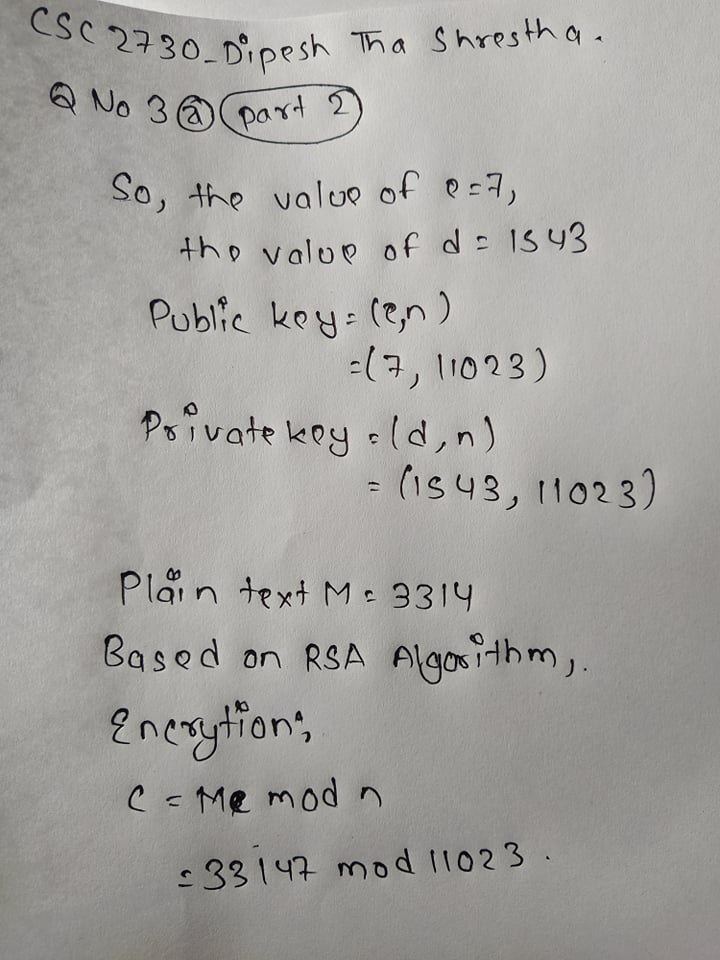 CSC 2730_Dipesh Tha Shrestha.
Q No 3 ⓐ part 2
So, the value of e=7,
the value of d = 1543
Public key = (e,n)
=(7, 11023)
Private key = (d, n)
= (1543, 11023)
Plain text M = 3314
Based on RSA Algorithm,.
Encrytion;
C = Me mod n
= 33147 mod 11023.